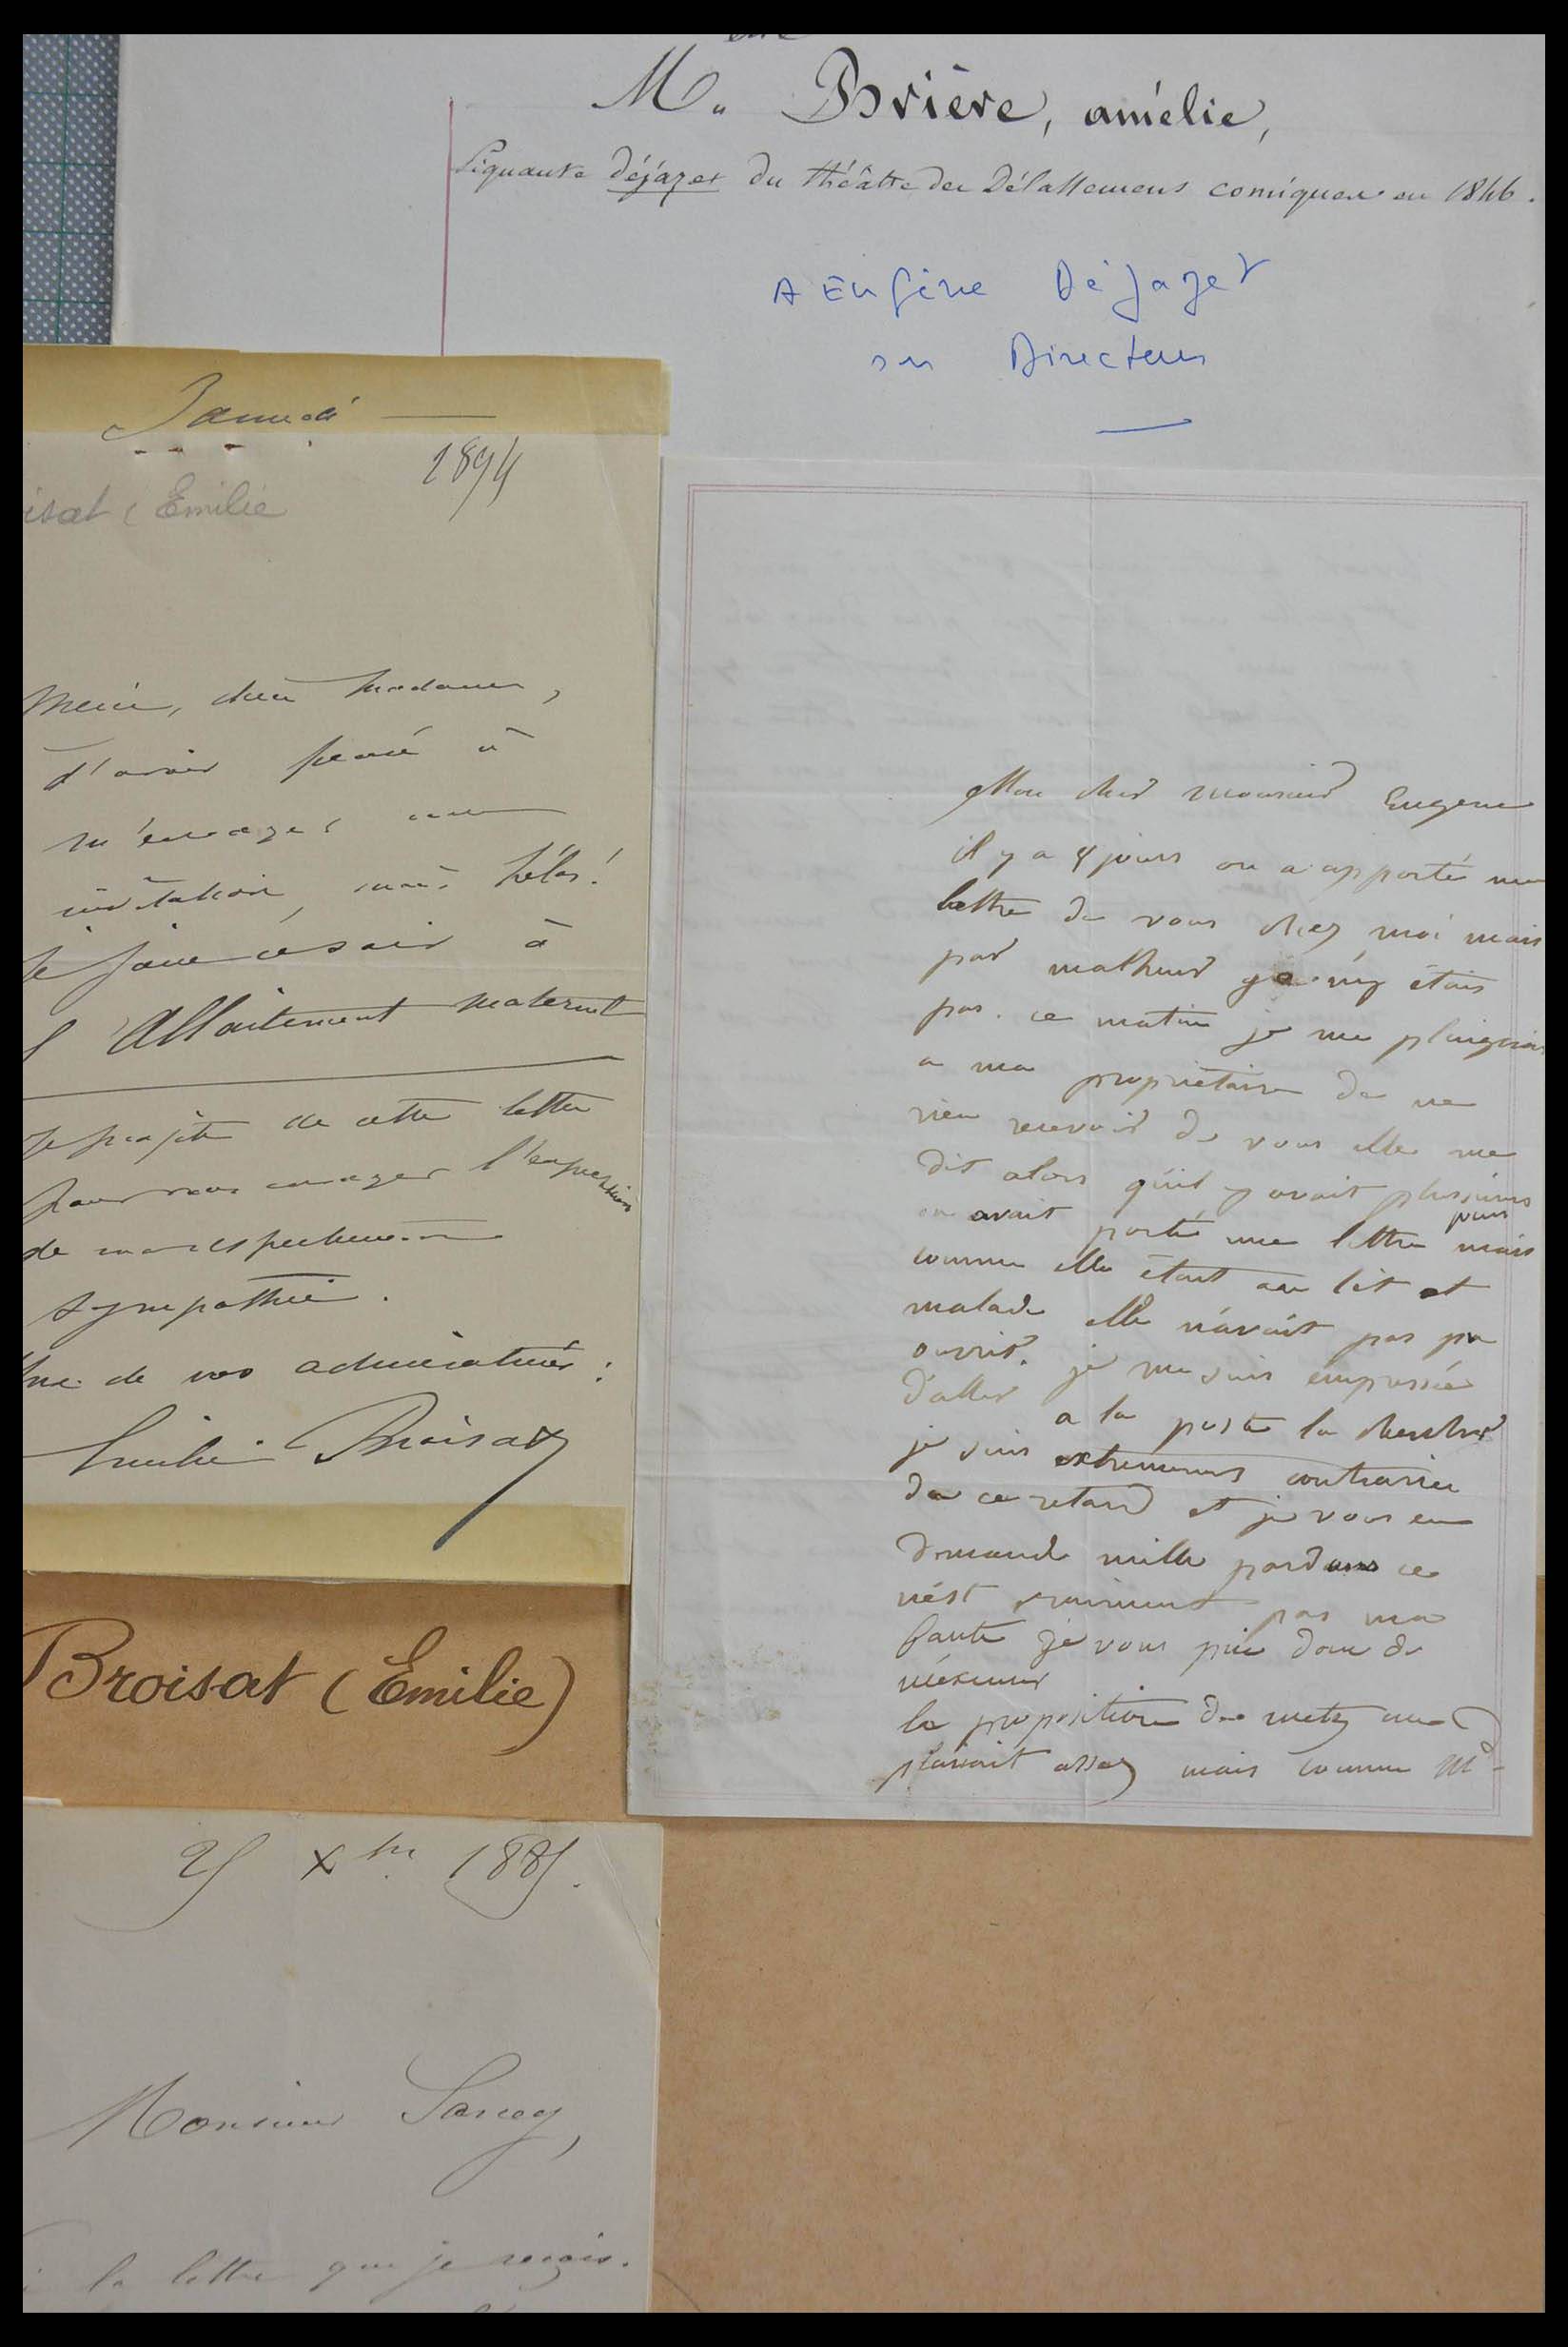 M. Brière, amélie,
Piquante déjazet du théâtre des Délassemens comiques en 1846.
A Eugène Déjazet
son Directeur
Samedi
1894
isat (Emilie
Merci, chère Madame,
d'avoir pensé à
m'envoyer une
invitation, mais hélas!
Je joue ce soir à
l'Allaitement maternel
Je profite de cette lettre
pour vous envoyer l'expression
de ma respectueuse
sympathie.
Une de vos admiratrices:
Emilie Broisat
Broisat (Emilie)
25 Xbre 1885.
Monsieur Sarcey,
la lettre que je reçois.
Mon cher monsieur Eugene
il y a 4 jours on a apporté une
lettre de vous chez moi mais
par malheur je n'y étais
pas. ce matin je me plaignais
a ma propriétaire de ne
rien recevoir de vous elle me
dit alors qu'il y avait plusieurs
jours
on avait porté une lettre mais
comme elle était au lit et
malade elle n'avait pas pu
ouvrir. je me suis empressée
d'aller a la poste la chercher
je suis extremement contrariée
de ce retard et je vous en
demande mille pardons ce
n'est vraiment pas ma
faute je vous prie donc de
m'excuser
la proposition de metz me
plairait assez mais comme Md